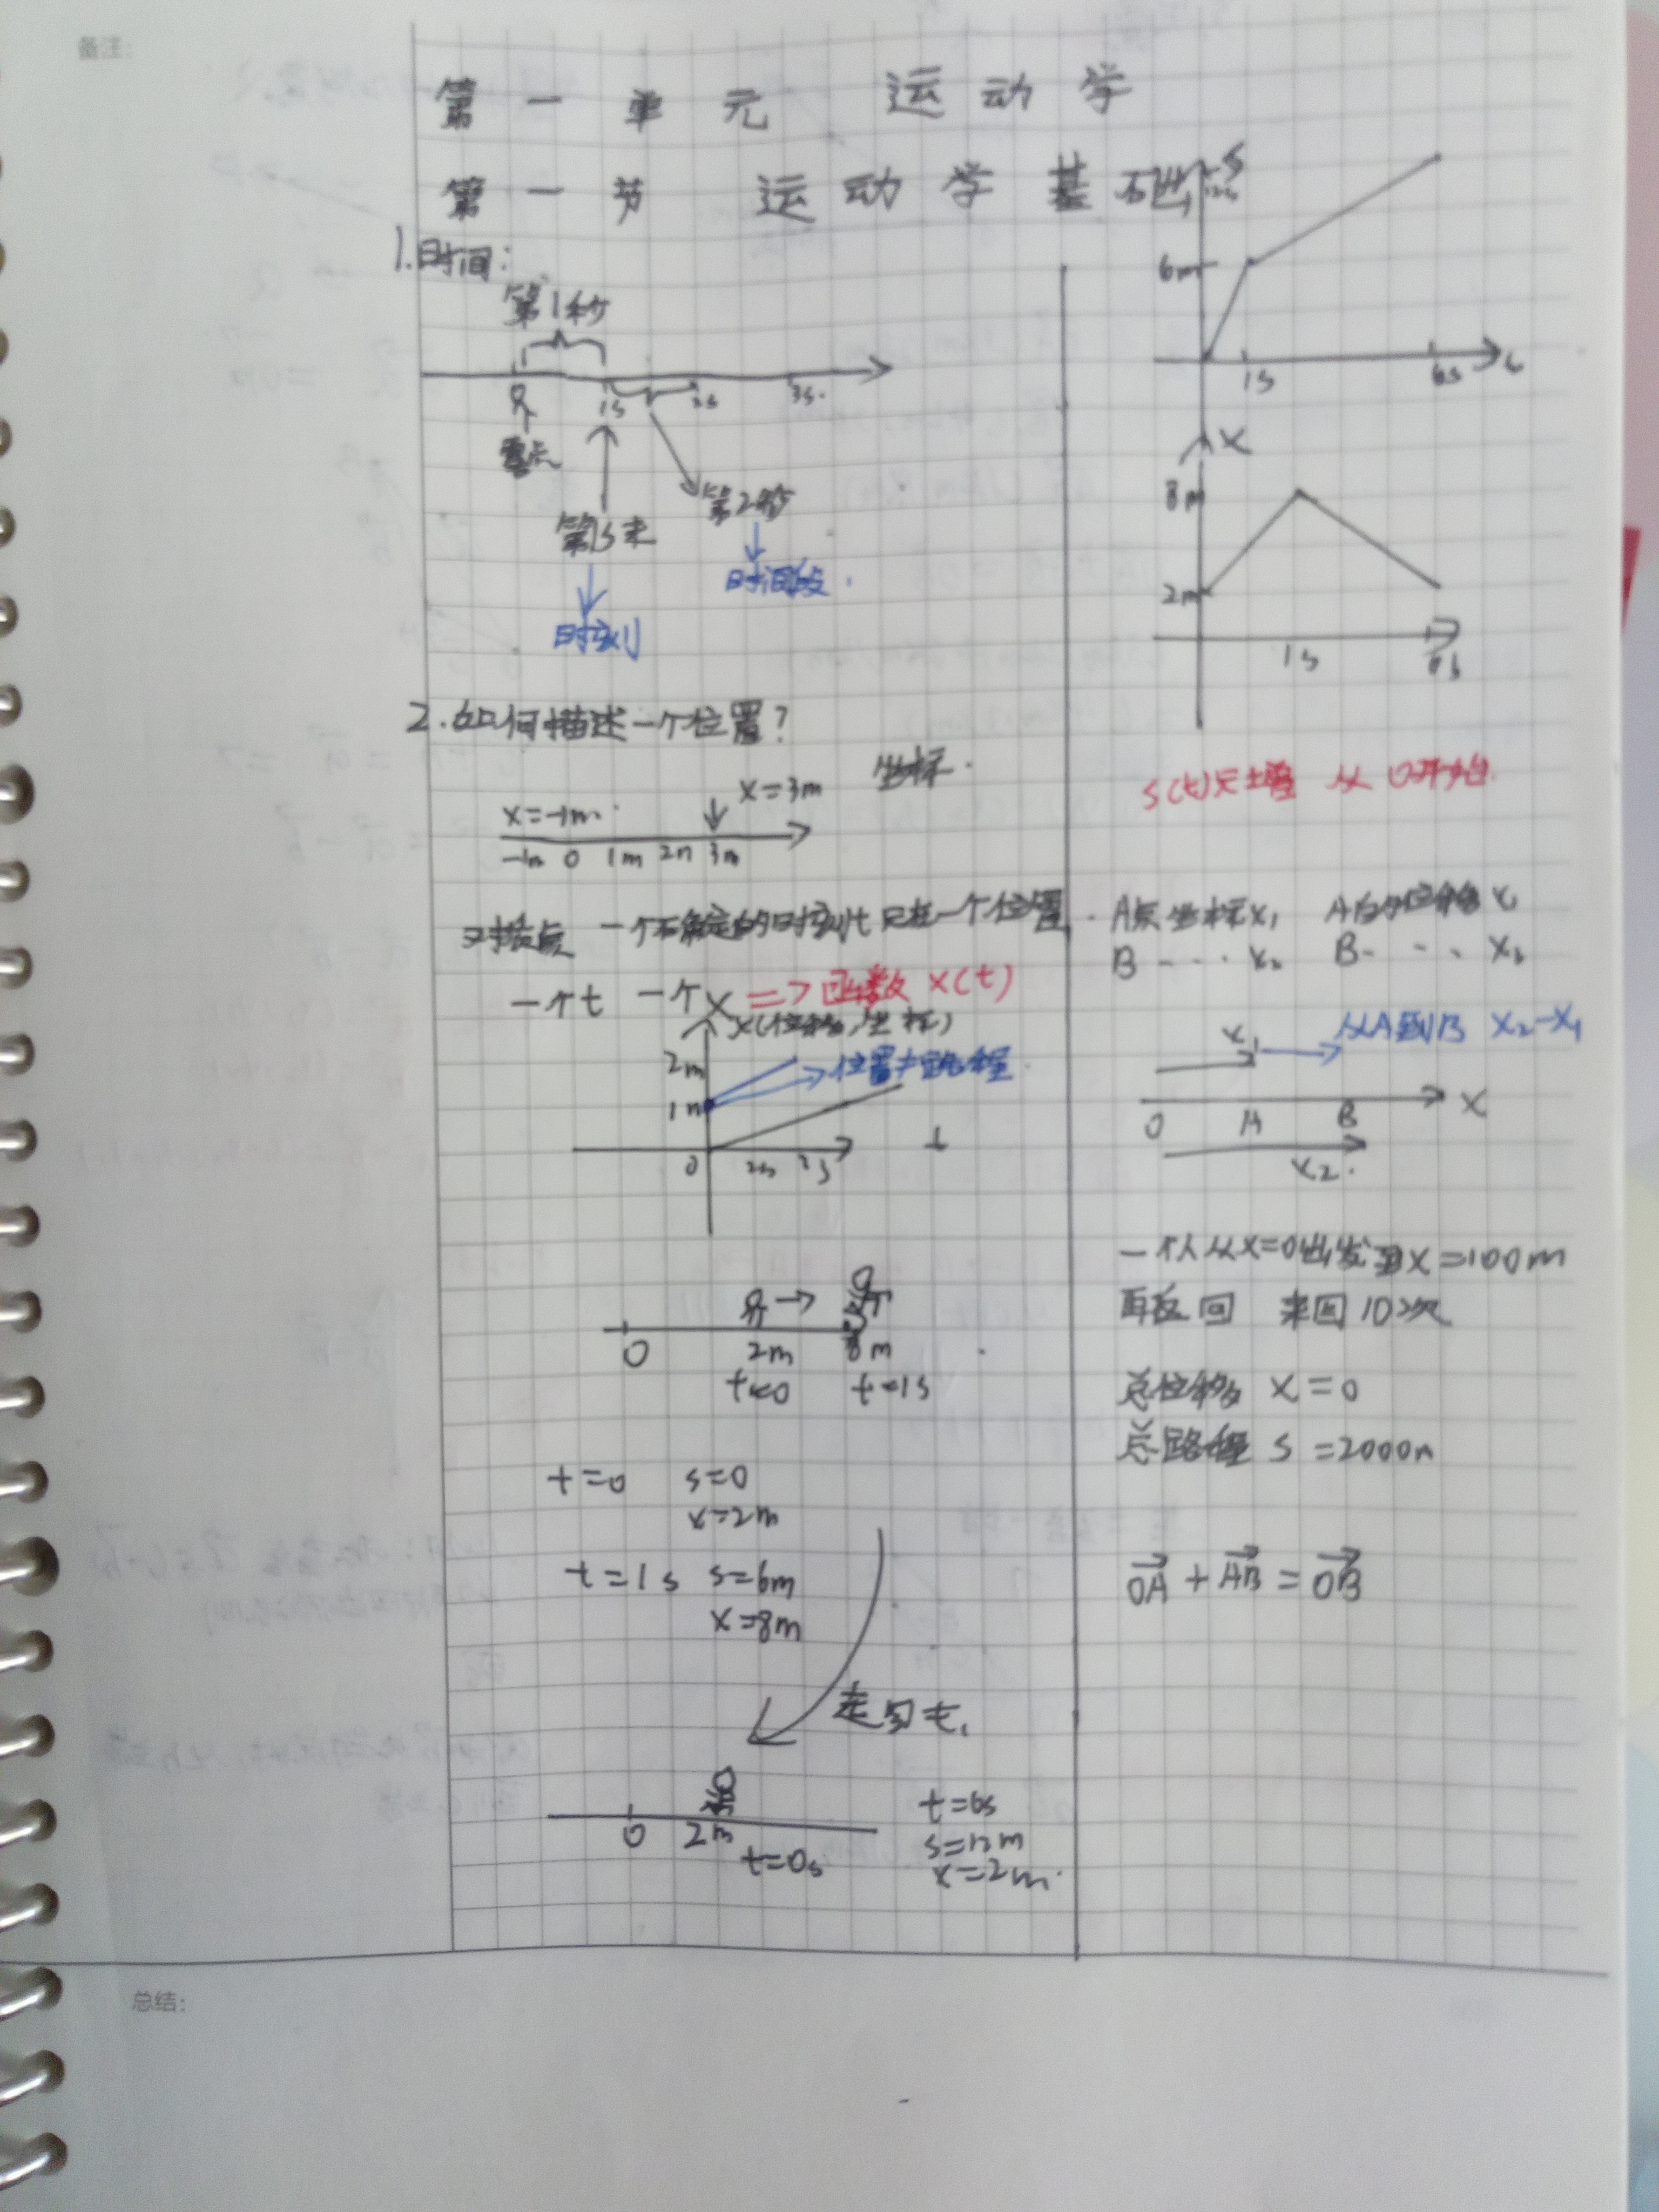 备注:
第一单元 运动学
第一节 运动学基础
1.时间:
第1秒
1s 2s 3s.
零点
第1s末
第2秒
时间段.
时刻
2.如何描述一个位置?
坐标.
x=3m
x=-1m.
-1m 0 1m 2m 3m
一个确定的时刻t 只在一个位置.
一个t 一个x => 函数 x(t)
x(位移,坐标)
2m
位置≠路程
1m
0 2s 3s t
0 2m 8m
t=0 t=1s
t=0 s=0
x=2m
t=1s s=6m
x=8m
走回去.
0 2m
t=0s
t=6s
s=12m
x=2m.
S
12m
6m
1s 6s t
x
8m
2m
1s 6s
s(t)只增 从0开始.
A点坐标x₁ A的位移x₁
B ··· x₂ B ··· x₂
x₁ 从A到B x₂-x₁
0 A B x
x₂.
一个人从x=0出发到x=100m
再返回 来回10次
总位移 x=0
总路程 s=2000m
OA→ + AB→ = OB→
总结: